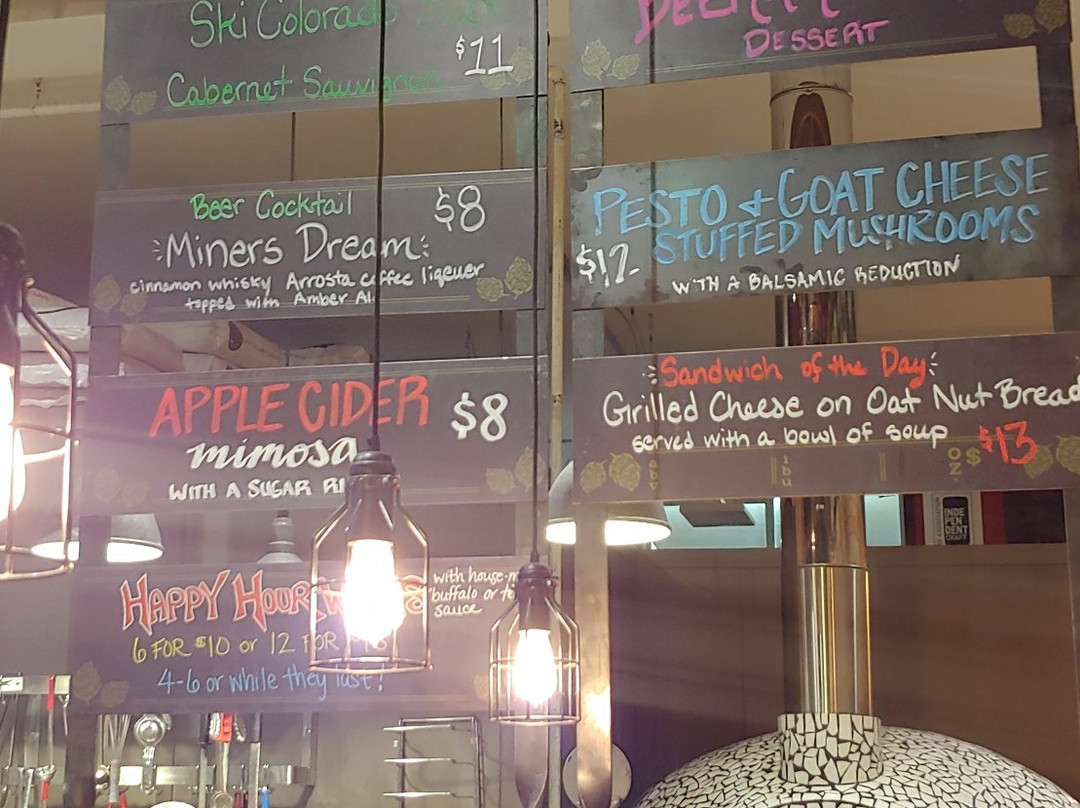 Ski Colorado
$11
Cabernet Sauvignon
Beer Cocktail $8
Miners Dream
cinnamon whisky Arrosta coffee liqeuer
topped with Amber
APPLE CIDER $8
mimosa
WITH A SUGAR
HAPPY HOUR
with house-m
buffalo or
sauce
6 FOR $10 or 12 FOR
4-6 or while they last!
DESSERT
PESTO + GOAT CHEESE
STUFFED MUSHROOMS
$12
WITH A BALSAMIC REDUCTION
Sandwich of the Day
Grilled Cheese on Oat Nut Bread
served with a bowl of soup $13
abv ibu oz. $
INDE
PEN
DENT
CRAFT